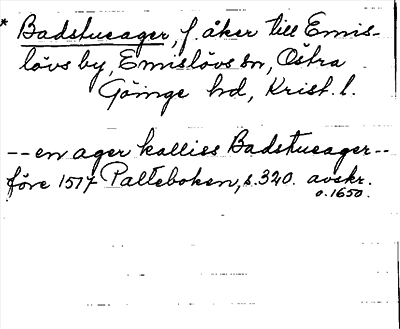 * Badstueager, f. åker till Emis-
lövs by, Emislövs sn, Östra
Göinge hd, Krist. l.
-- en ager kalliss Badstueager --
före 1517 Palteboken, s. 320. avskr.
o. 1650.